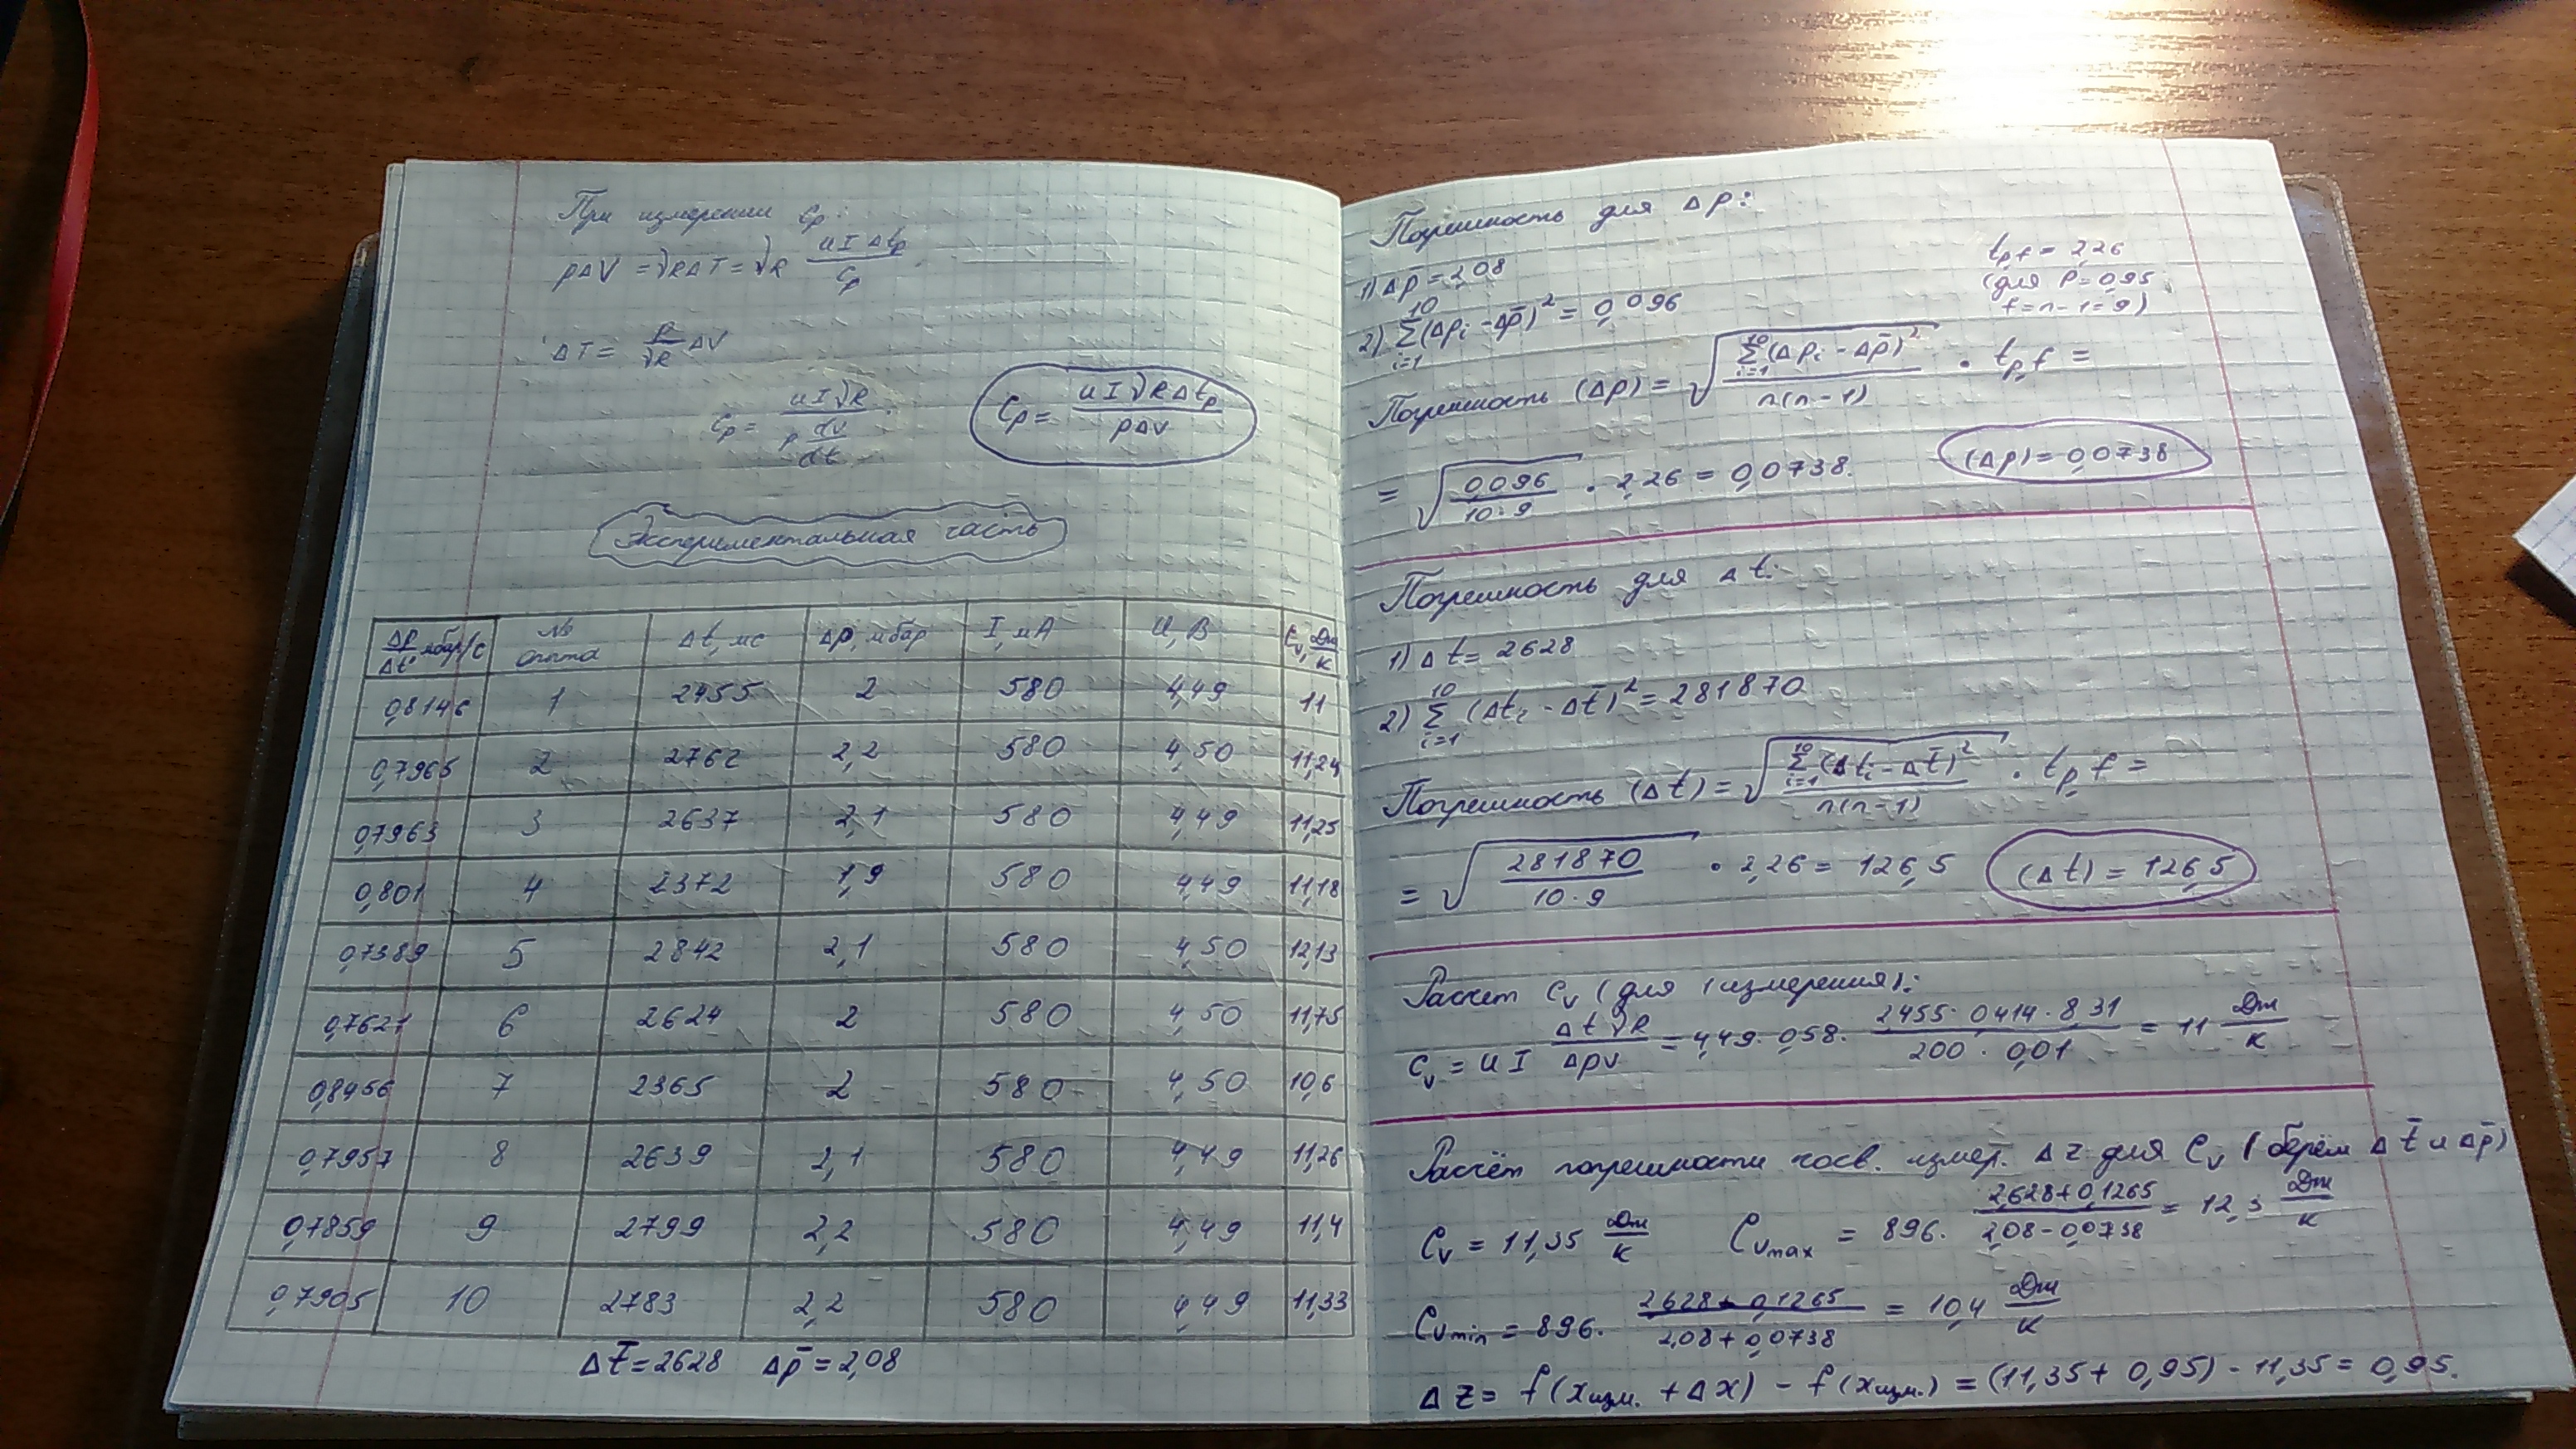 При измерении Cp:
pΔV = νRΔT = νR UIΔtp / Cp
ΔT = p/νR ΔV
Cp = UIνR / p dV/dt
Cp = UIνRΔtp / pΔV
Экспериментальная часть
Δp/Δt, мбар/с | № опыта | Δt, мс | Δp, мбар | I, мА | U, В | Cv, Дж/К
0,8146 | 1 | 2455 | 2 | 580 | 4,49 | 11
0,7965 | 2 | 2762 | 2,2 | 580 | 4,50 | 11,24
0,7963 | 3 | 2637 | 2,1 | 580 | 4,49 | 11,25
0,801 | 4 | 2372 | 1,9 | 580 | 4,49 | 11,18
0,7389 | 5 | 2842 | 2,1 | 580 | 4,50 | 12,13
0,7621 | 6 | 2624 | 2 | 580 | 4,50 | 11,75
0,8456 | 7 | 2365 | 2 | 580 | 4,50 | 10,6
0,7957 | 8 | 2639 | 2,1 | 580 | 4,49 | 11,26
0,7859 | 9 | 2799 | 2,2 | 580 | 4,49 | 11,4
0,7905 | 10 | 2783 | 2,2 | 580 | 4,49 | 11,33
Δt̄ = 2628 Δp̄ = 2,08
Погрешность для Δp:
1) Δp̄ = 2,08
tp,f = 2,26
(для P = 0,95;
f = n-1 = 9)
2) Σ(i=1..10) (Δpi - Δp̄)² = 0,096
Погрешность (Δp) = √(Σ(i=1..10) (Δpi - Δp̄)² / n(n-1)) · tp,f =
= √(0,096 / 10·9) · 2,26 = 0,0738.
(Δp) = 0,0738
Погрешность для Δt:
1) Δt = 2628
2) Σ(i=1..10) (Δti - Δt̄)² = 281870
Погрешность (Δt) = √(Σ(i=1..10) (Δti - Δt̄)² / n(n-1)) · tp,f =
= √(281870 / 10·9) · 2,26 = 126,5
(Δt) = 126,5
Расчет Cv (для 1 измерения):
Cv = UI ΔtνR / ΔpV = 4,49 · 0,58 · 2455 · 0,414 · 8,31 / 200 · 0,01 = 11 Дж/К
Расчёт погрешности косв. измер. Δz для Cv (берём Δt̄ и Δp̄)
Cv = 11,35 Дж/К Cvmax = 8,96 · 2,628+0,1265 / 2,08-0,0738 = 12,3 Дж/К
Cvmin = 8,96 · 2,628-0,1265 / 2,08+0,0738 = 10,4 Дж/К
Δz = f(xизм. + Δx) - f(xизм.) = (11,35 + 0,95) - 11,35 = 0,95.